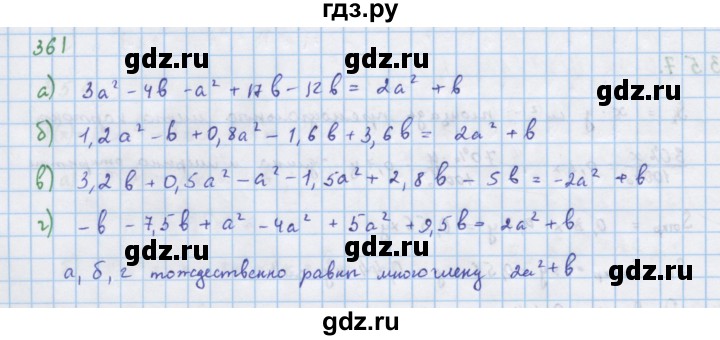 гдз.ру
361
gdz.ru gdz.ru
а) 3a² - 4в - a² + 17в - 12в = 2a² + в
gdz.ru gdz.ru
б) 1,2a² - в + 0,8a² - 1,6в + 3,6в = 2a² + в
gdz.ru gdz.ru
в) 3,2в + 0,5a² - a² - 1,5a² + 2,8в - 5в = -2a² + в
gdz.ru gdz.ru
г) -в - 7,5в + a² - 4a² + 5a² + 9,5в = 2a² + в
gdz.ru gdz.ru
а, б, г тождественно равны многочлену 2a² + в
gdz.ru gdz.ru